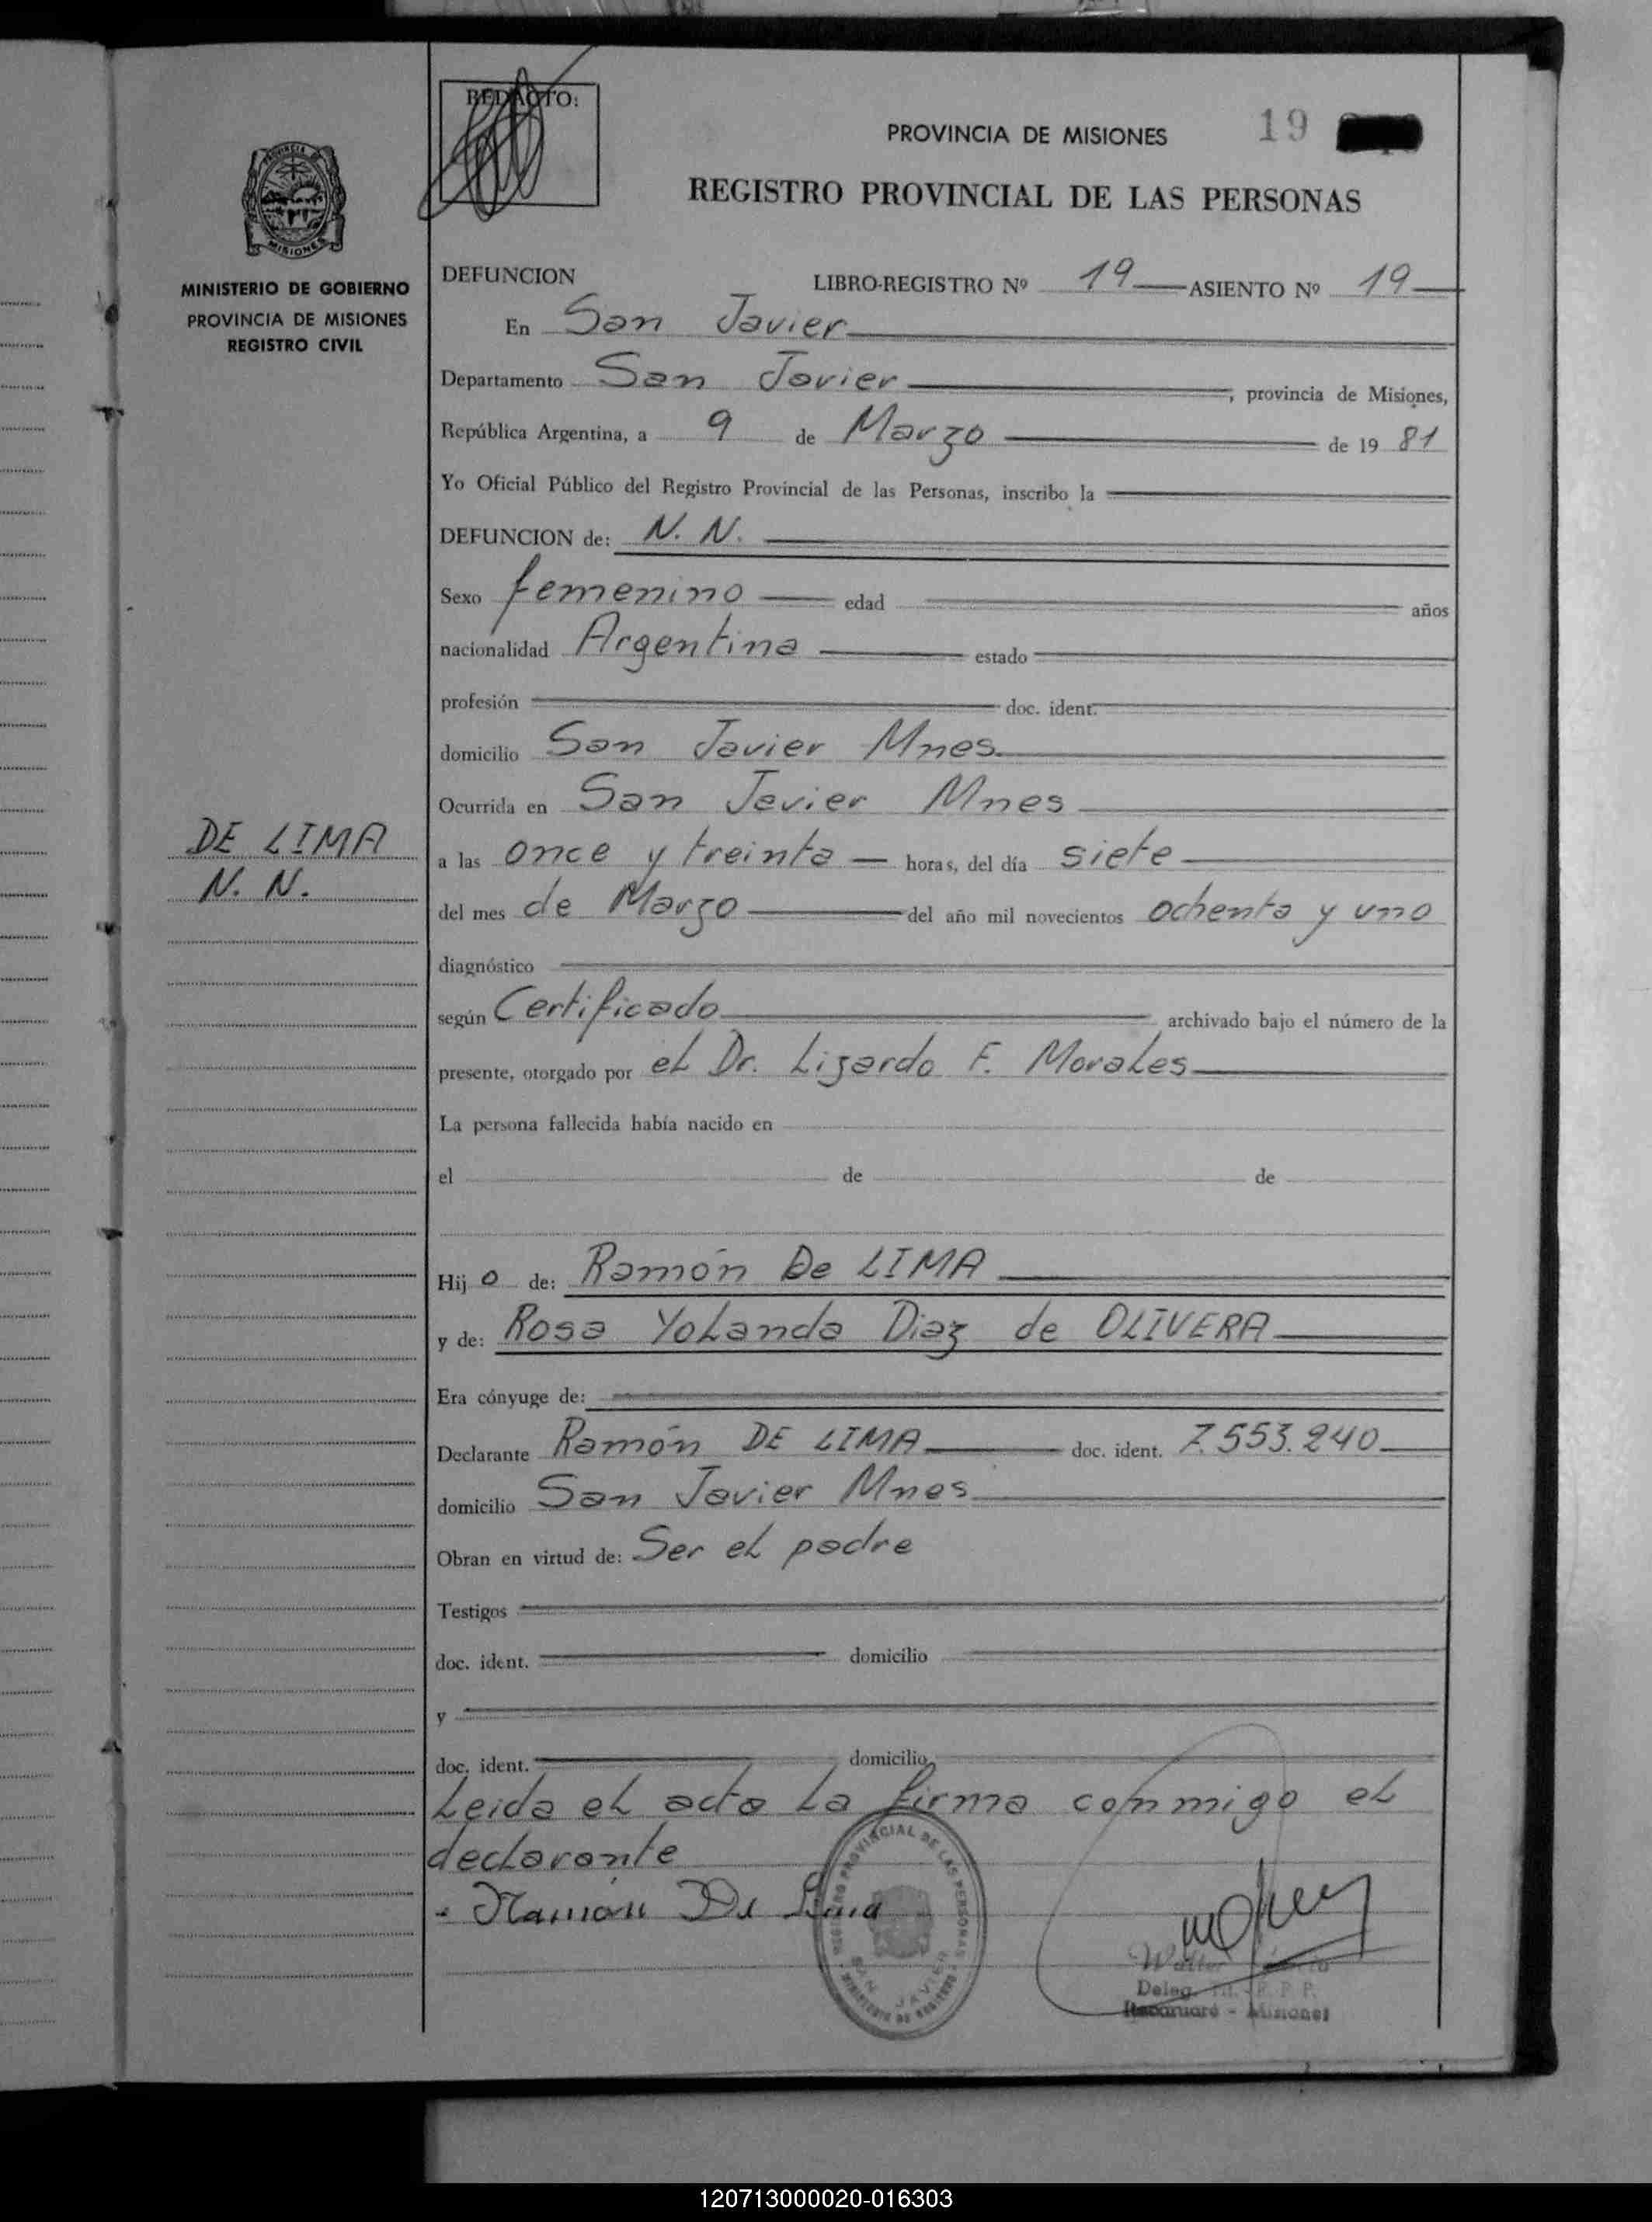 REDACTO:
PROVINCIA DE MISIONES 19
REGISTRO PROVINCIAL DE LAS PERSONAS
MISIONES
MINISTERIO DE GOBIERNO
PROVINCIA DE MISIONES
REGISTRO CIVIL
DEFUNCION LIBRO-REGISTRO Nº 19 ASIENTO Nº 19
En San Javier
Departamento San Javier, provincia de Misiones,
República Argentina, a 9 de Marzo de 19 81
Yo Oficial Público del Registro Provincial de las Personas, inscribo la
DEFUNCION de: N. N.
Sexo femenino edad años
nacionalidad Argentina estado
profesión doc. ident.
domicilio San Javier Mnes.
Ocurrida en San Javier Mnes
DE LIMA
N. N.
a las once y treinta horas, del día siete
del mes de Marzo del año mil novecientos ochenta y uno
diagnóstico
según Certificado archivado bajo el número de la
presente, otorgado por el Dr. Lizardo F. Morales
La persona fallecida había nacido en
el de de
Hij o de: Ramón De LIMA
y de: Rosa Yolanda Diaz de OLIVERA
Era cónyuge de:
Declarante Ramón DE LIMA doc. ident. 7.553.240
domicilio San Javier Mnes
Obran en virtud de: Ser el padre
Testigos
doc. ident. domicilio
y
doc. ident. domicilio
Leida el acta la firma conmigo el
declarante
Ramón De Lima
REGISTRO PROVINCIAL DE LAS PERSONAS
SAN JAVIER
MINISTERIO DE GOBIERNO
Walter
Deleg. R. P. P.
Itacaruaré - Misiones
120713000020-016303